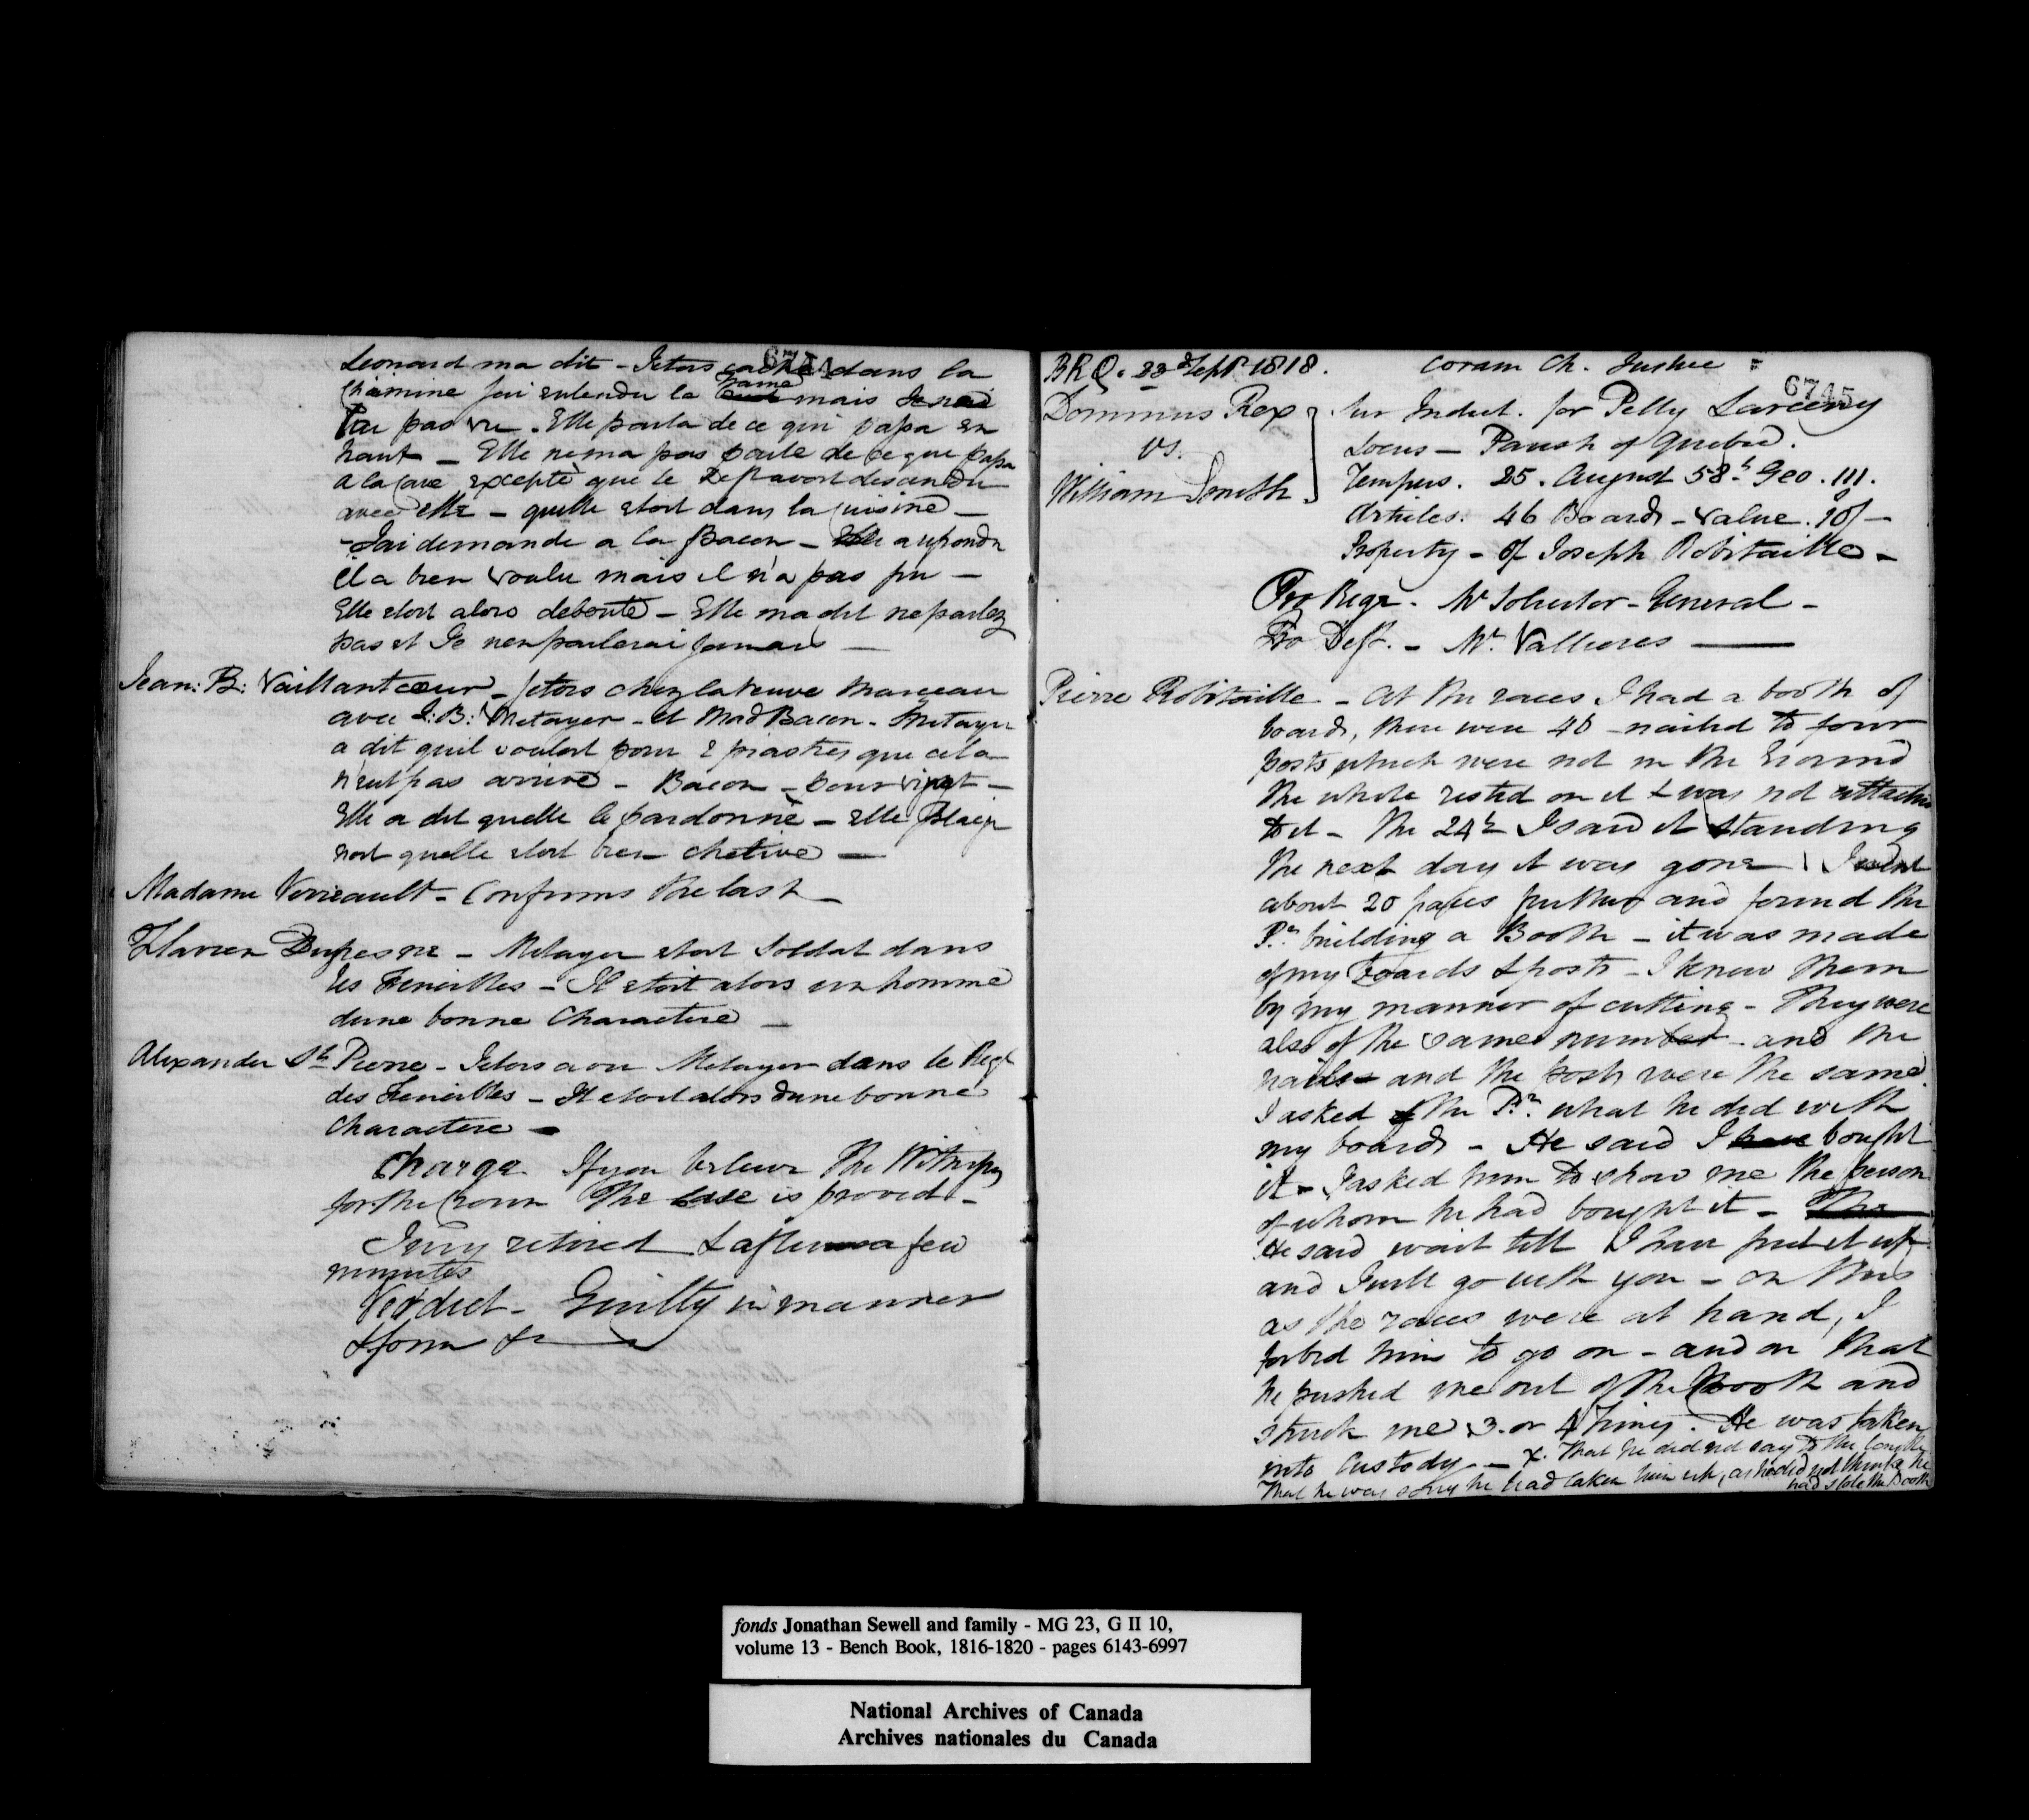 6744
Leonard ma dit - Jetois caché dans la
Chiminé Jai entendu le Tame mais Je nai
L'ai pas vu. Elle parla de ce qui s'apa en
haut - Elle ne ma pas parlé de ce que s'apa
a la Cave excepté que le Deft avoit descendu
avec elle - quelle etoit dans la Cuisine -
- Jai demandé a la Bacon - Elle a repondu
il a bien voulu mais il n'a pas pu -
Elle etoit alors deboute - Elle ma dit ne parlez
pas et Je nen parlerai Jamais -
Jean: B: Vaillantcœur - Jetois chez la veuve Marceau
avec J:B: Metayer - et Mad Bacon - Metayer
a dit quil vouloit pour 2 piastres que cela
n'eut pas arrivé - Bacon - pour vingt -
Elle a dit quelle le pardonné - elle
quelle etoit bien chetive -
Madame Verreault - Confirms the last -
Flavien Dufresne - Metayer etoit Soldat dans
les Fencibles - Il etoit alors un homme
dune bonne Charactere -
Alexander St Pierre - Jetois avec Metayer dans le Regt
des Fencibles - Il etoit alors dune bonne
Charactere -
Charge If you believe the Witnesses
for the Crown The Case is proved -
Jury retired & after a few
minutes
Verdict - Guilty in manner
& form &c
BRQ. 23d Septr 1818. Coram Ch. Justice =
6745
Dominus Rex
vs.
William Smith
Sur Indict. for Petty Larceny
Locus - Parish of Quebec.
Tempus. 25. August 58th Geo. III.
Articles. 46 Boards - value. 10/-
Property - of Joseph Robitaille -
Pro Rege. Mr Solicitor-General -
Pro Deft. - Mr. Vallieres -
Pierre Robitaille - At the races I had a booth of
boards, there were 46 - nailed to four
posts which were not in the Ground
the whole rested on it & was not attached
to it - the 24th I saw it standing
the next day it was gone I went
about 20 paces further and found the
Pr. building a Booth - it was made
of my Boards & posts - I knew them
by my manner of cutting - They were
also of the same number - and the
nails - and the posts were the same.
I asked the Pr. what he did with
my boards - He said I have bought
it - I asked him to show me the person
of whom he had bought it - The
He said wait till I have put it up
and I will go with you - on this
as the races were at hand, I
forbid him to go on - and on that
he pushed me out of the Booth and
struck me 3. or 4 Times. He was taken
into Custody. - X. That he did not say to the
That he was sorry he had taken him up, as he did not think he
had stole the Booth
fonds Jonathan Sewell and family - MG 23, G II 10,
volume 13 - Bench Book, 1816-1820 - pages 6143-6997
National Archives of Canada
Archives nationales du Canada